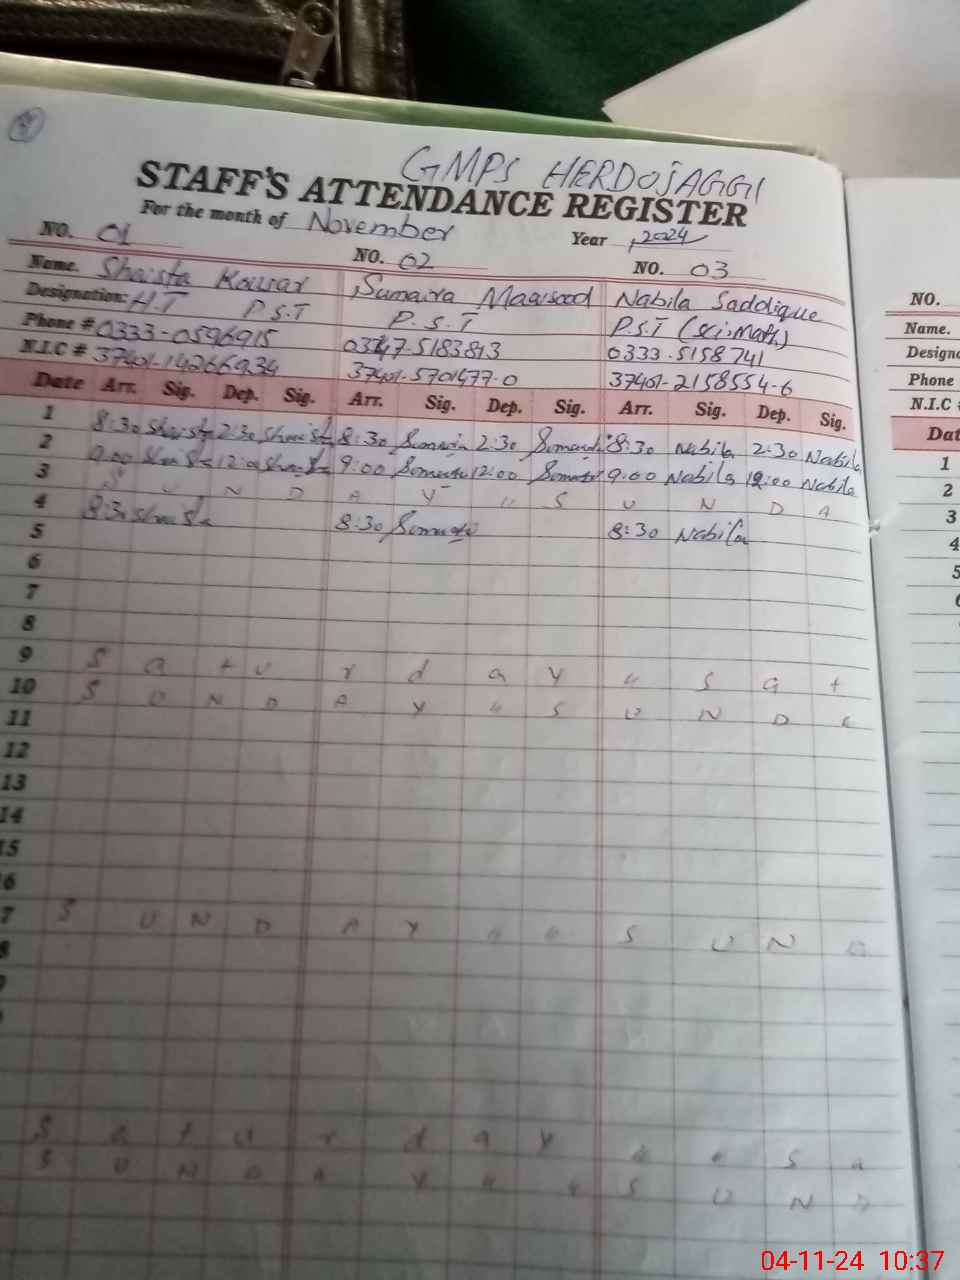 GMPS HERDOJAGGI
STAFF'S ATTENDANCE REGISTER
For the month of November Year 2024
NO. 01 NO. 02 NO. 03
Name. Shaista Kousar Sumaira Maqsood Nabila Saddique
Designation: H.T P.S.T P.S.T P.S.T (Sci.Math)
Phone # 0333-0596915 0333-5158741
N.I.C # 37401-5701477-0 37401-2158554-6
Date Arr. Sig. Dep. Sig. Arr. Sig. Dep. Sig. Arr. Sig. Dep. Sig.
1 8:30 Shaista 2:30 Shaista 8:30 2:30 8:30 Nabila 2:30 Nabila
2 9:00 Shaista 12:00 Shaista 9:00 12:00 9:00 Nabila 12:00 Nabila
3 S U N D A Y " S U N D A
4 8:30 Shaista 8:30 8:30 Nabila
5
6
7
8
9 S a t u r d a y " S a t
10 S U N D A Y " S U N D
11
12
13
14
15
6
7 S U N D A Y " " S U N D
8
S a t u r d a y " " S a
S U N D A Y " " S U N D
NO.
Name.
Design
Phone
N.I.C #
Dat
1
2
3
4
5
6
04-11-24 10:37